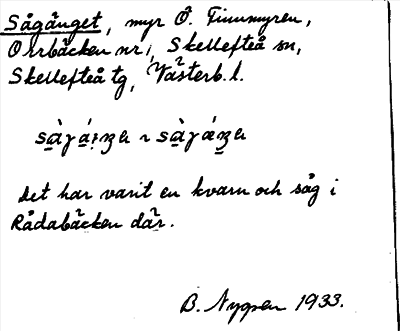 Sågånget, myr Ö. Finnmyren,
Orrbäcken nr 1, Skellefteå sn,
Skellefteå tg, Västerb. l.
Det har varit en kvarn och såg i
Rådabäcken där.
B. Nygren 1933.